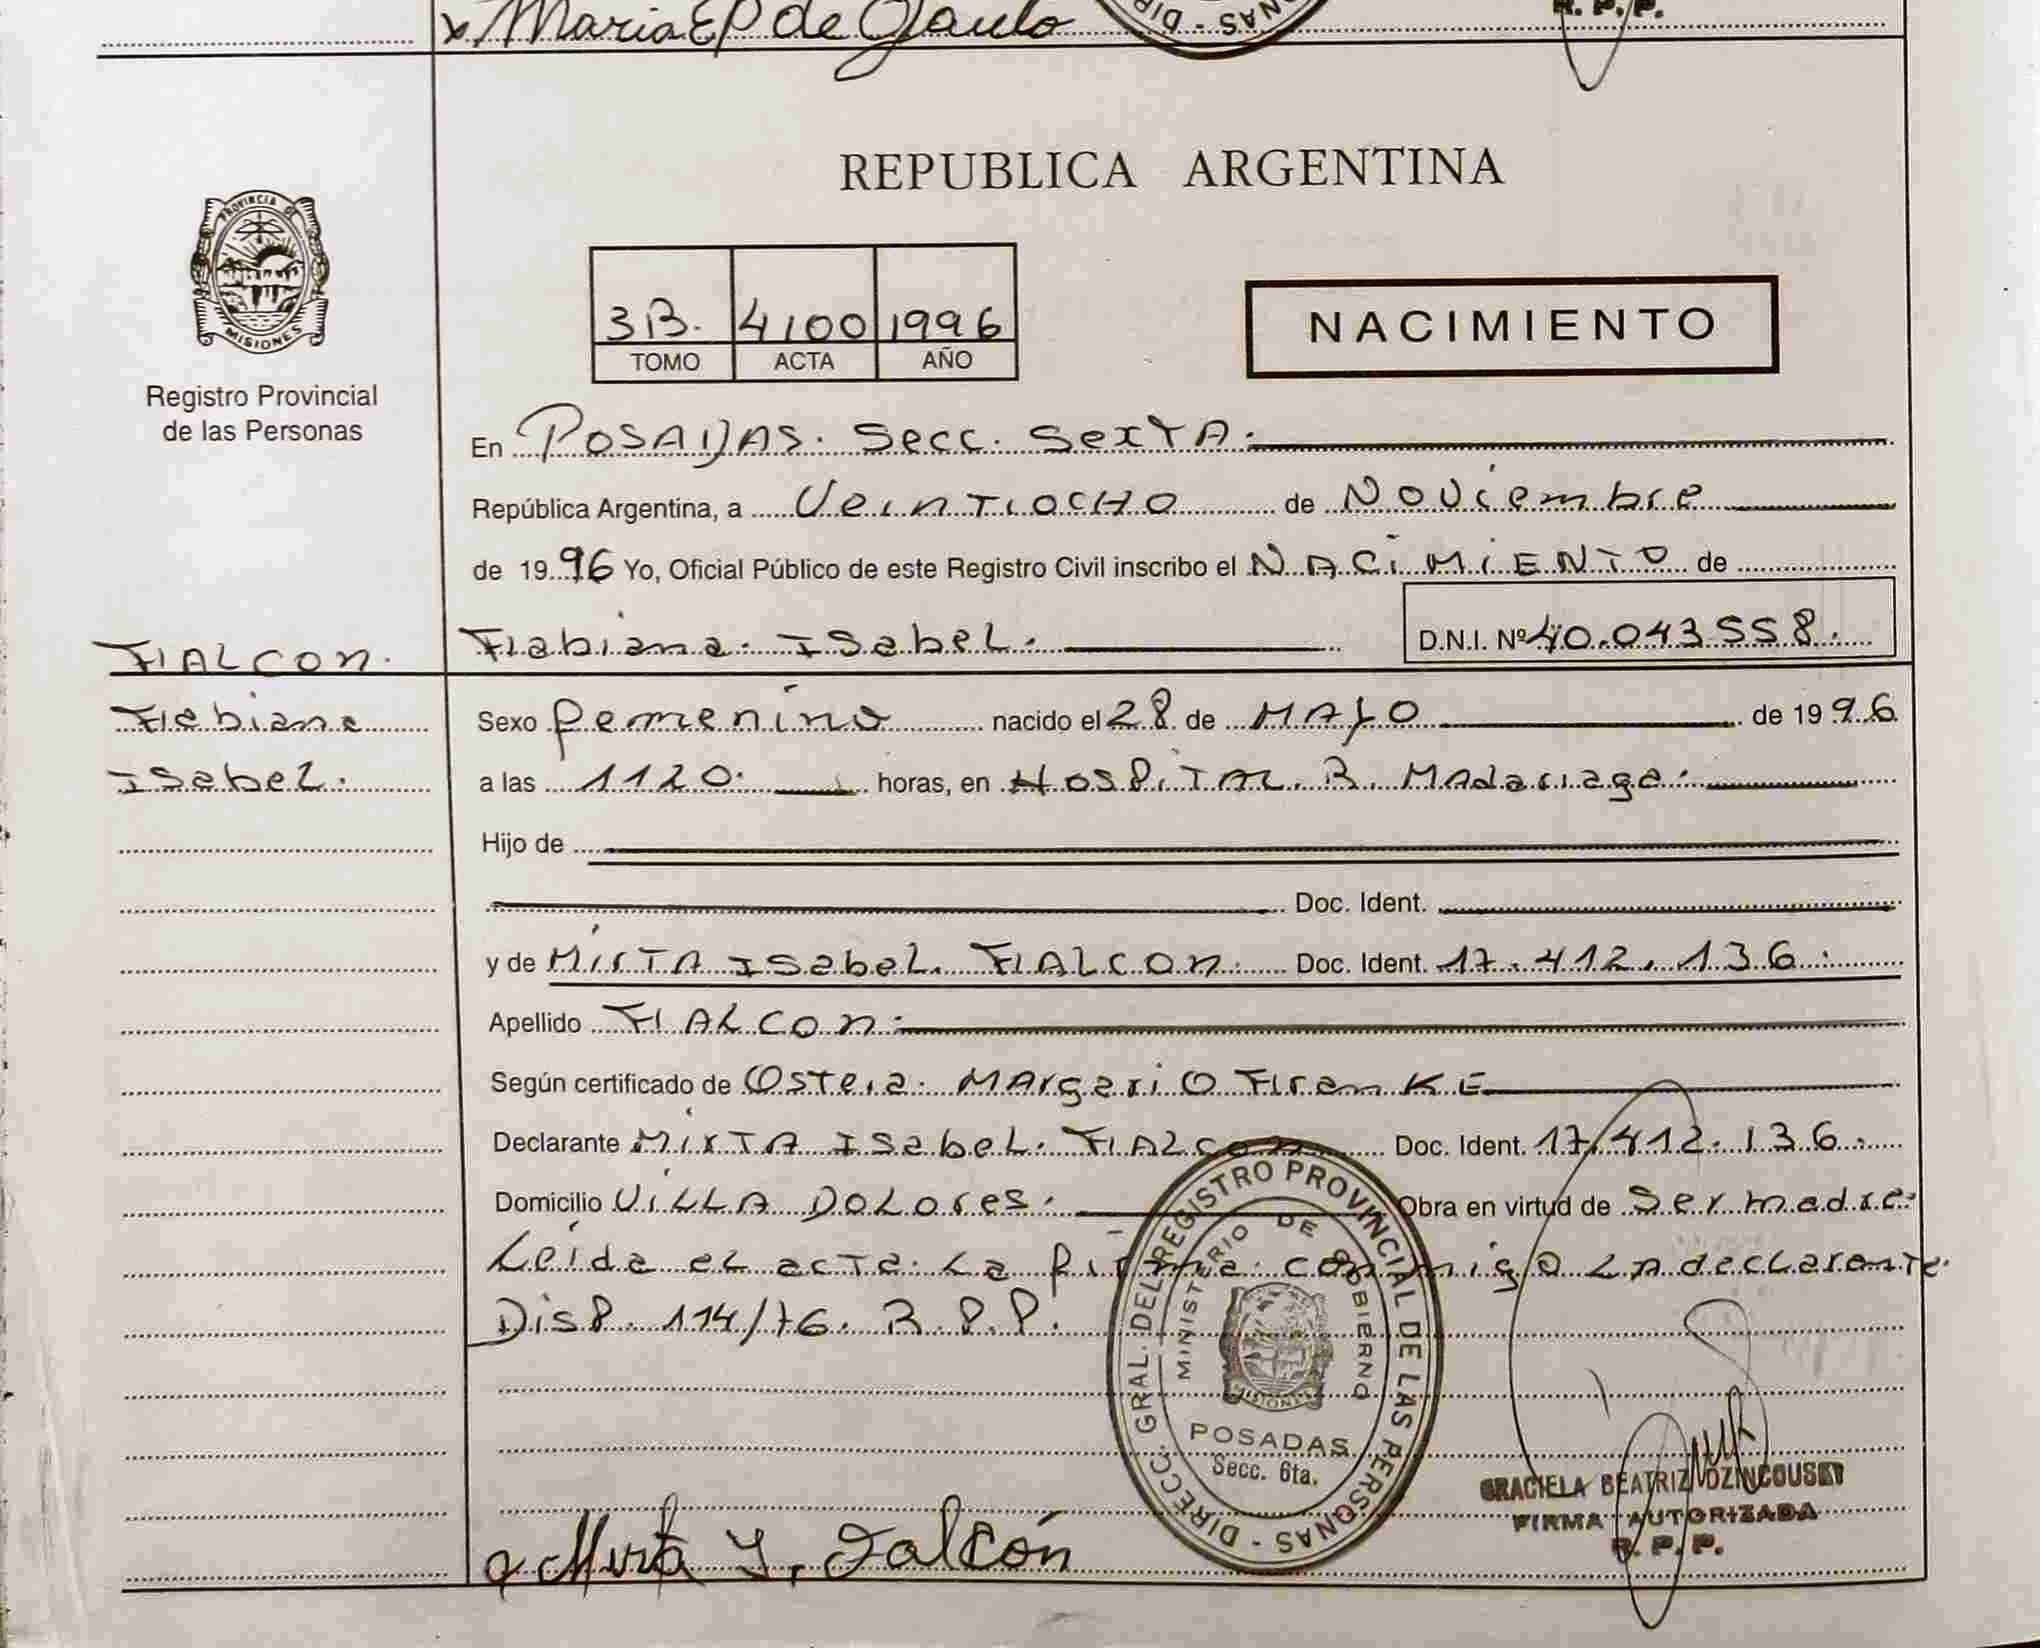 x Maria E P de
R. P. P.
REPUBLICA ARGENTINA
PROVINCIA DE
MISIONES
Registro Provincial
de las Personas
3B. 4100 1996
TOMO ACTA AÑO
NACIMIENTO
En POSADAS. Secc. SexTA.
República Argentina, a VeinTiOCHO de NOViembre
de 1996 Yo, Oficial Público de este Registro Civil inscribo el NACiMiENTO de
FALCON. Fabiana. Isabel. D.N.I. Nº 40.043558.
Fabiana Sexo femenino nacido el 28 de MAYO de 1996
Isabel. a las 1120. horas, en HOSPiTAL. R. MAdariaga.
Hijo de
Doc. Ident.
y de MirTA Isabel. FALCON. Doc. Ident. 17.412.136.
Apellido FALCON.
Según certificado de Obstera. MArgariO FranKE
Declarante MirTA Isabel. FALcon Doc. Ident. 17.412.136.
Domicilio ViLLA DOLOres. Obra en virtud de Ser madre.
Leida el acta. La firma conmigo LA decLarante.
Disp. 114/76. R.P.P.
DIRECC. GRAL. DEL REGISTRO PROVINCIAL DE LAS PERSONAS -
MINISTERIO DE GOBIERNO
MISIONES
POSADAS
Secc. 6ta.
GRACIELA BEATRIZ DZINCOUSKY
FIRMA AUTORIZADA
R. P. P.
x Mirta I. Falcón